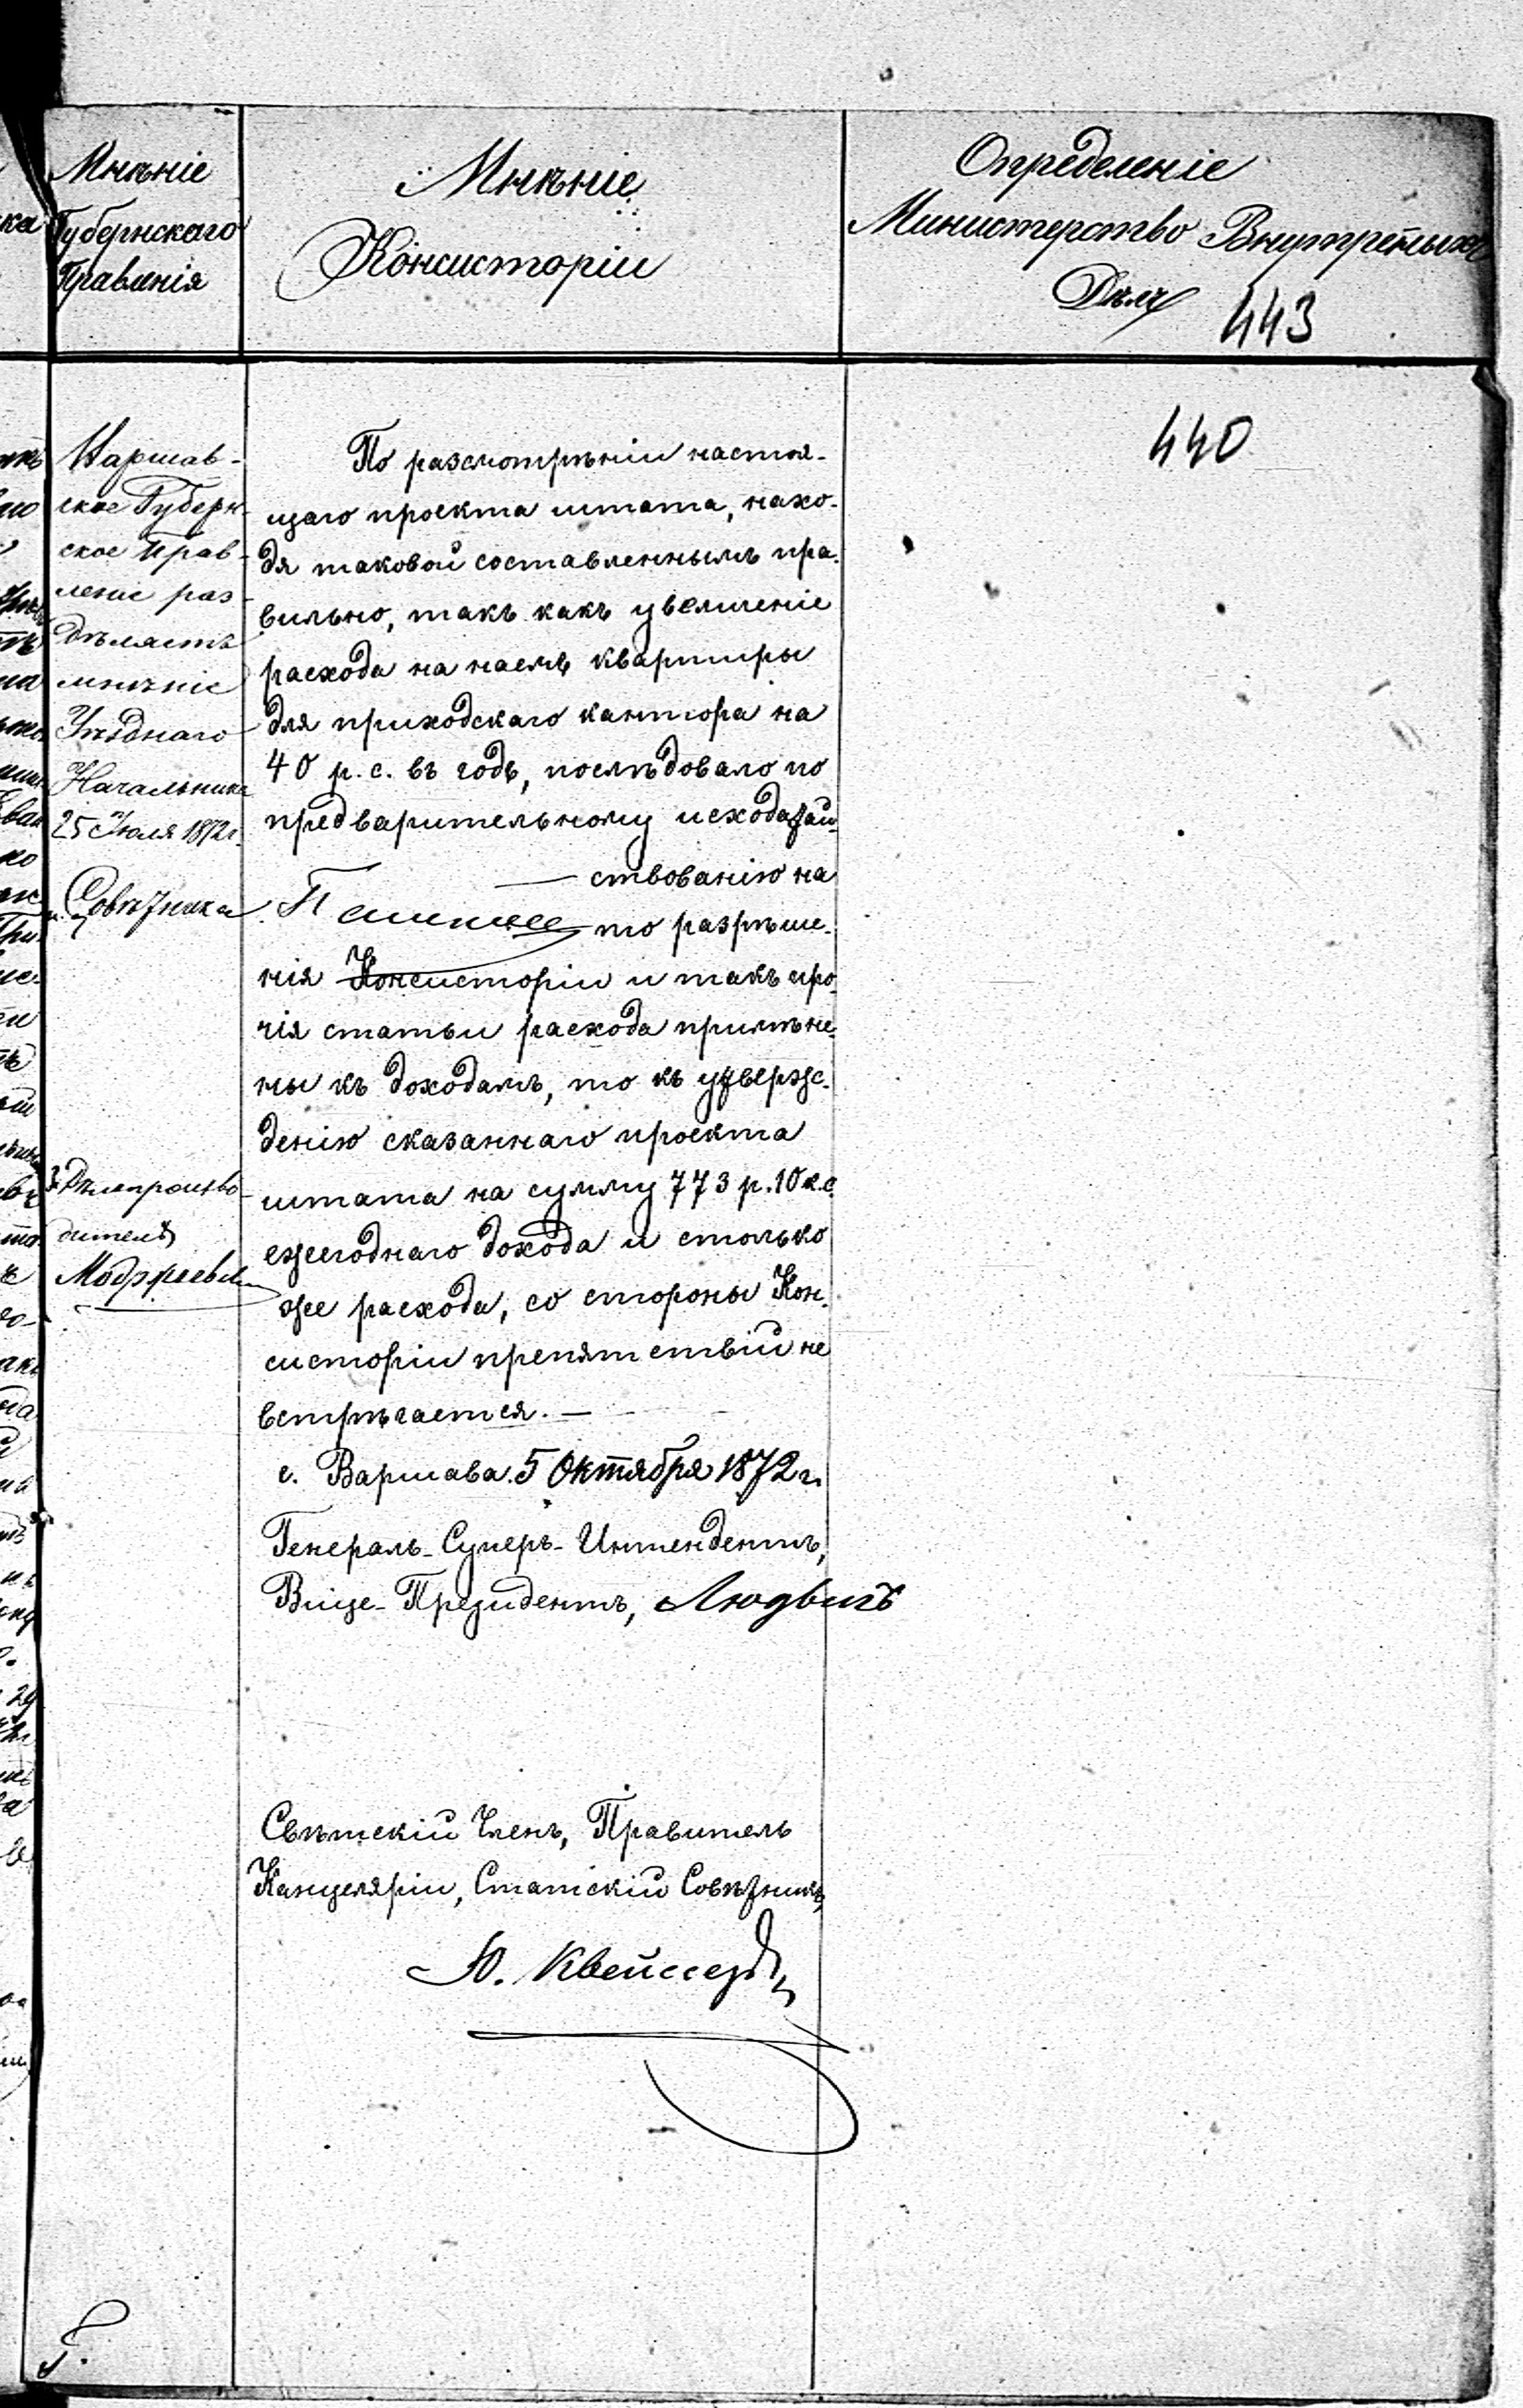 Мнѣніе
Губернскаго
Правленія
Мнѣніе
Консисторіи
Определеніе
Министерство Внутреныхъ
Дѣлъ
443
440
Варшав-
ское Губерн-
ское Прав-
леніе раз-
дѣляетъ
мнѣніе
Уѣзднаго
Начальника
25 Іюля 1872 г.
Совѣтника
Дѣлопроизво-
дитель
По разсмотрѣніи настоя-
щаго проекта штата, нахо-
дя таковой составленнымъ пра-
вильно, такъ какъ увеличеніе
расхода на наемъ квартиры
для приходскаго кантора на
40 р. с. въ годъ, послѣдовало по
предварительному исходатай-
ствованію на
то разрѣше-
нія Консисторіи и такъ про-
чія статьи расхода примѣне-
ны къ доходамъ, то къ утверж-
денію сказаннаго проекта
штата на сумму 773 р. 10 к. с.
ежегоднаго дохода и столько
же расхода, со стороны Кон-
систоріи препятствій не
встрѣчается. —
г. Варшава. 5 Октября 1872 г.
Генералъ-Суперъ-Интендентъ,
Вице-Президентъ, Людвигъ
Свѣтскій Членъ, Правитель
Канцеляріи, Статскій Совѣтникъ,
Ю.